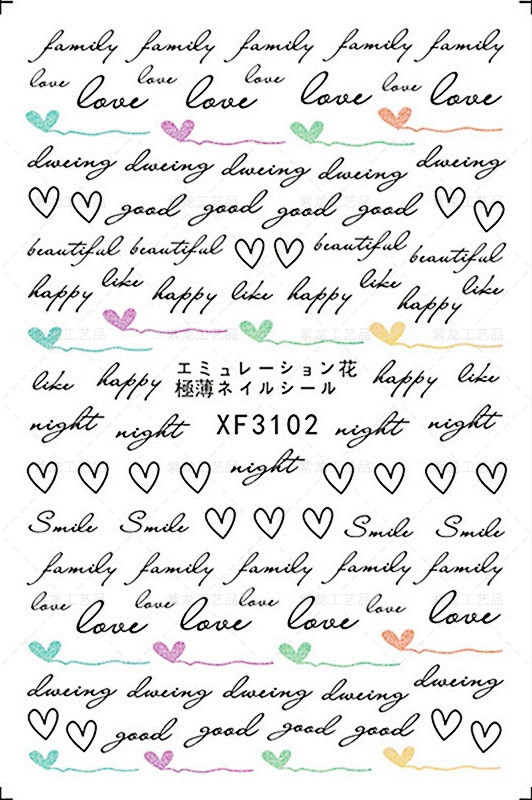 family family family family family
love love love
love love love love
dweing dweing dweing dweing dweing
good good good good
beautiful beautiful beautiful beautiful
happy like happy like happy like happy like
エミュレーション花
極薄ネイルシール
like happy happy like
night night XF3102 night night
night
Smile Smile Smile Smile
family family family family family
love love love love
love love love love
dweing dweing dweing dweing dweing
good good good good
紫龙工艺品